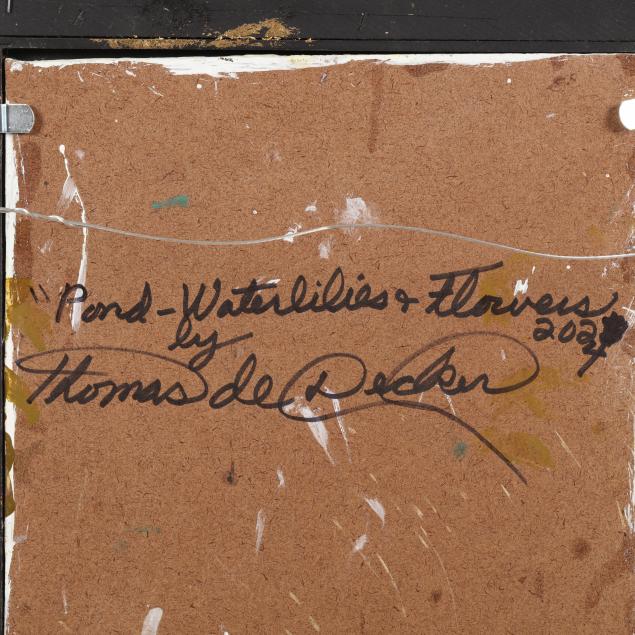 "Pond-Waterlilies & Flowers
by 2024
Thomas de Decker